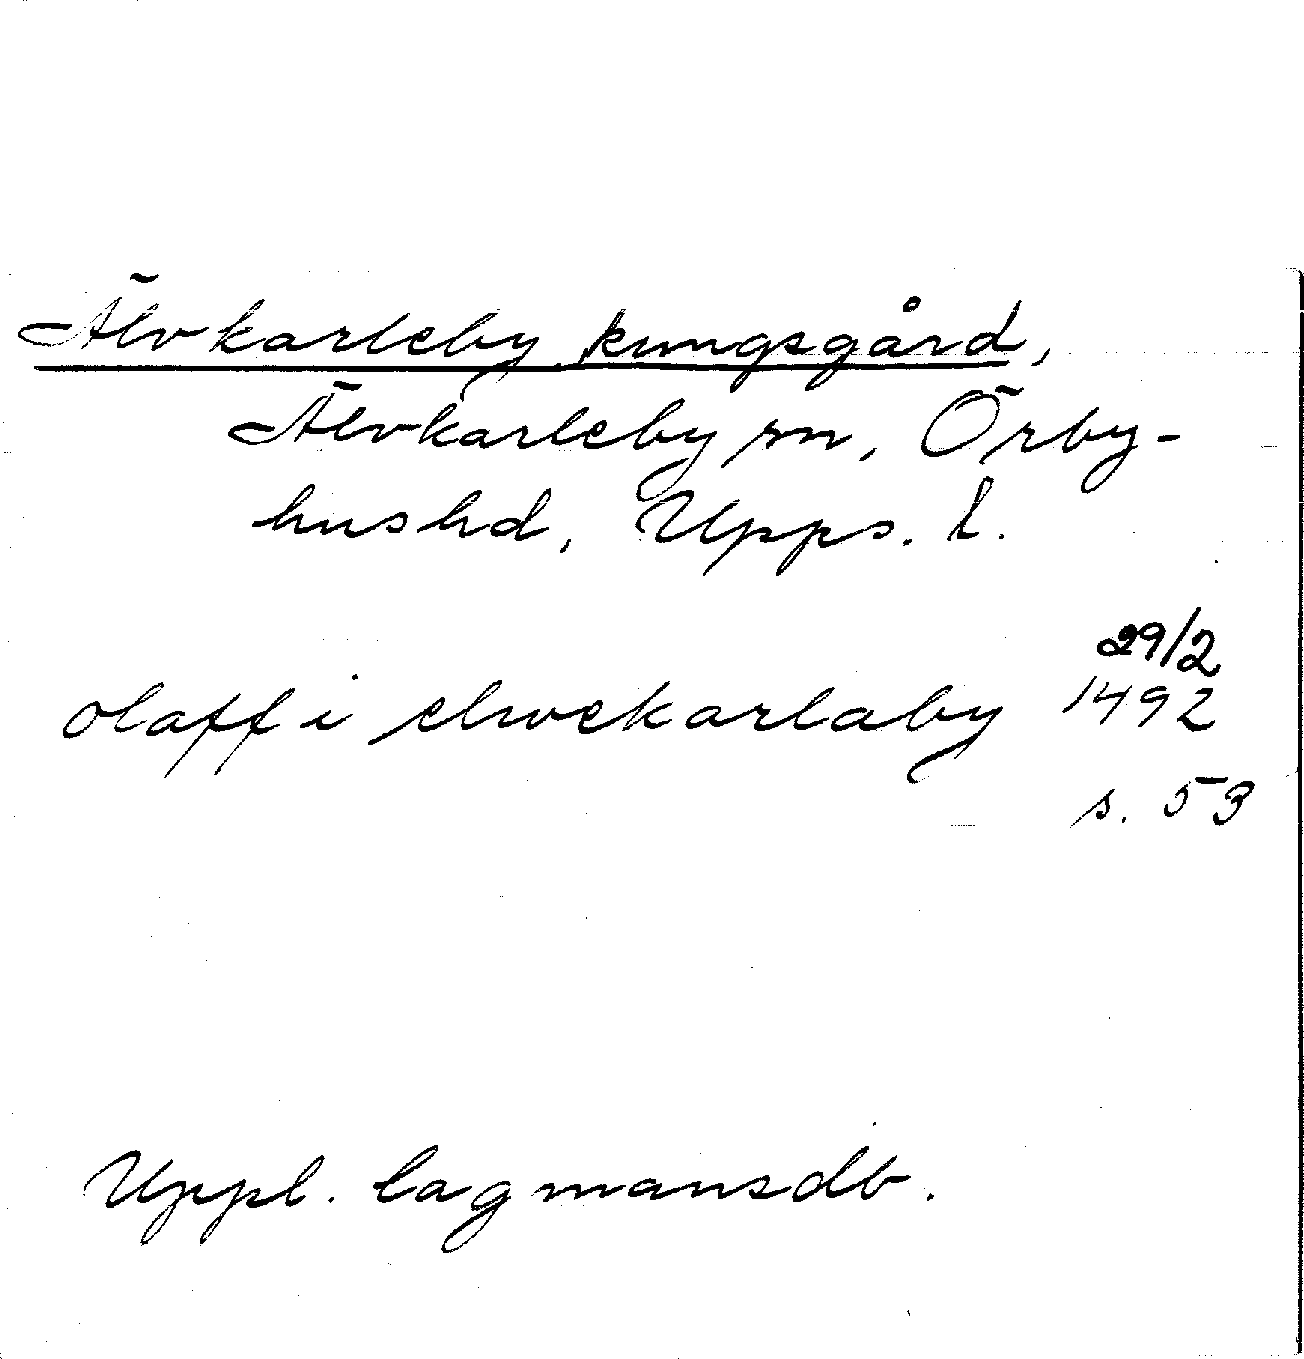 Älvkarleby kungsgård,
Älvkarleby sn, Örby-
hushd, Upps. l.
29/2
olaff i elwekarlaby 1492
s. 53
Uppl. lagmansdb.